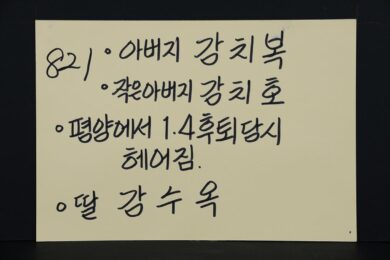 821 ∘ 아버지 강치복
∘ 작은아버지 강치호
∘ 평양에서 1.4후퇴당시
헤어짐.
∘ 딸 강수옥